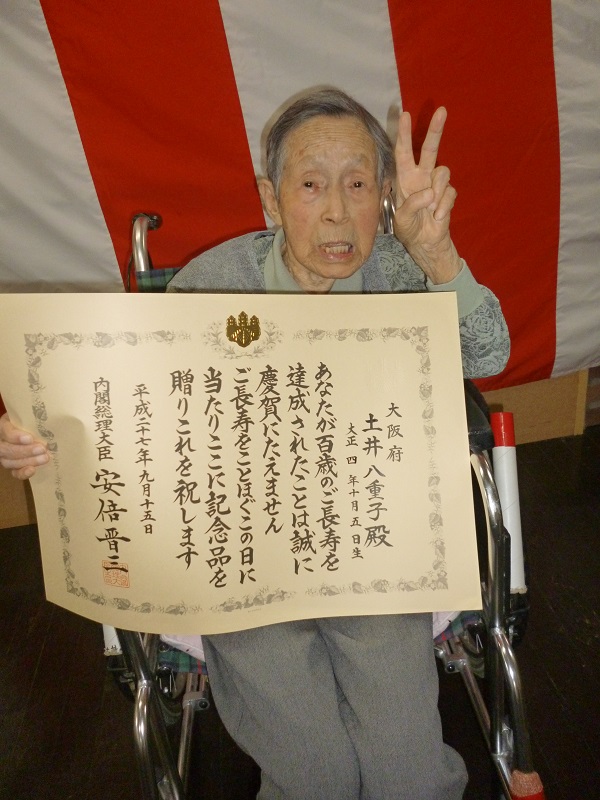 大阪府
土井 八重子殿
大正 四 年十月 五 日生
あなたが百歳のご長寿を
達成されたことは誠に
慶賀にたえません
ご長寿をことほぐこの日に
当たりここに記念品を
贈りこれを祝します
平成二十七年九月十五日
内閣総理大臣 安倍晋三